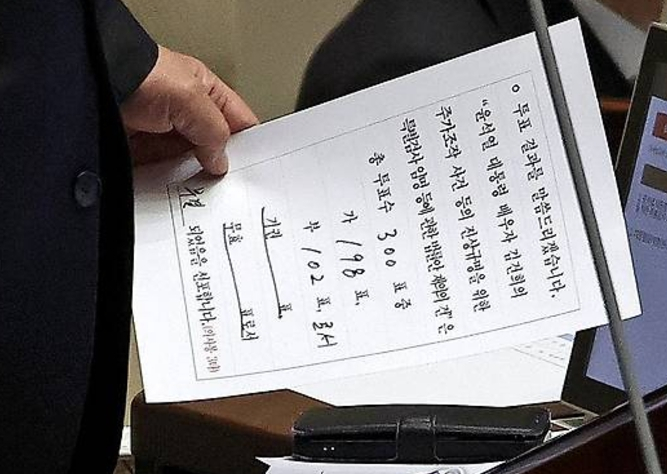 ○ 투표 결과를 말씀드리겠습니다.
"윤석열 대통령 배우자 김건희의
주가조작 사건 등의 진상규명을 위한
특별검사 임명 등에 관한 법률안 재의의 건"은
총 투표수 300 표 중
가 198 표,
부 102 표,로서
기권 표,
무효 표로서
부결 되었음을 선포합니다.(의사봉 3타)